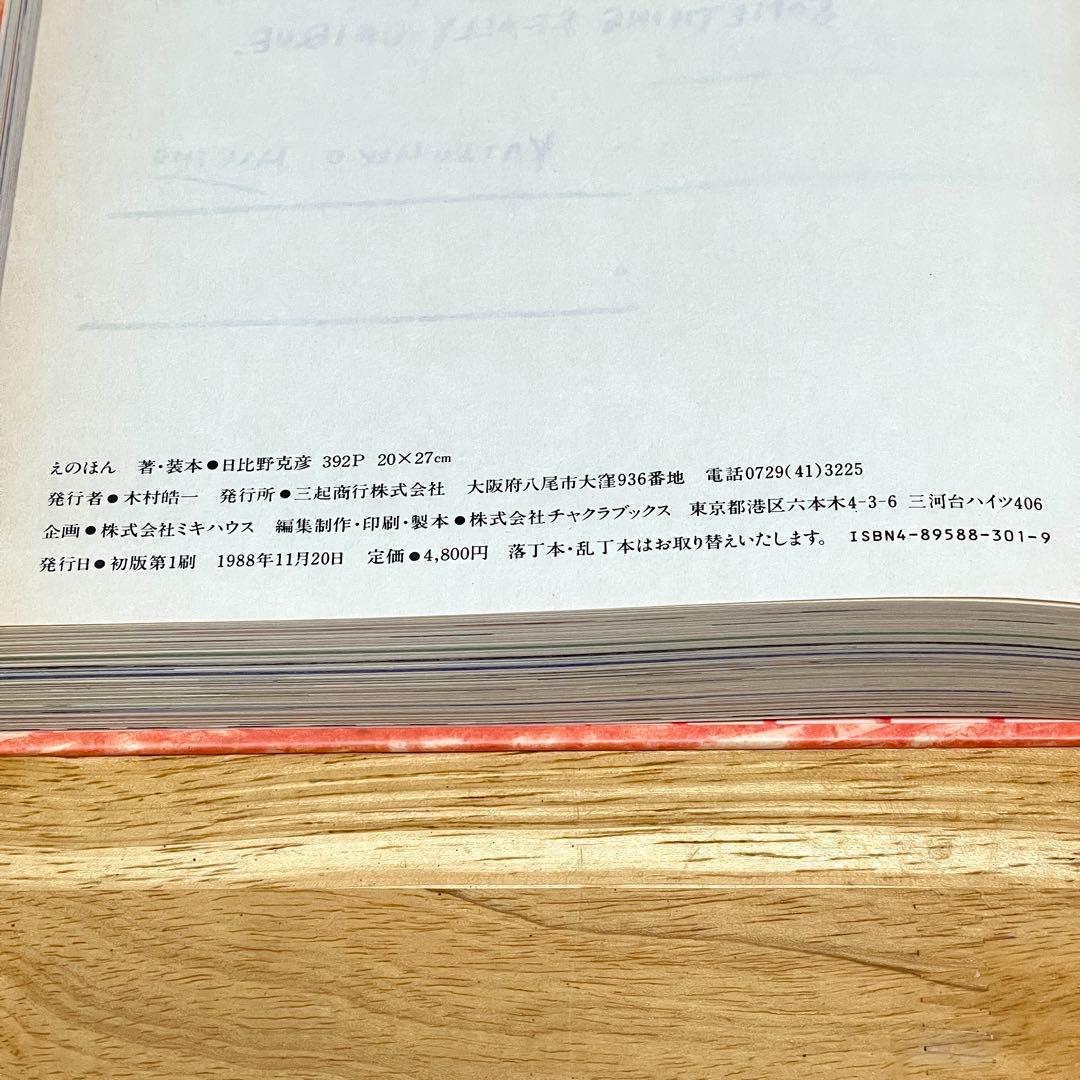 えのほん 著・装本●日比野克彦 392P 20×27cm
発行者●木村皓一 発行所●三起商行株式会社 大阪府八尾市大窪936番地 電話0729(41)3225
企画●株式会社ミキハウス 編集制作・印刷・製本●株式会社チャクラブックス 東京都港区六本木4-3-6 三河台ハイツ406
発行日●初版第1刷 1988年11月20日 定価●4,800円 落丁本・乱丁本はお取り替えいたします。 ISBN4-89588-301-9